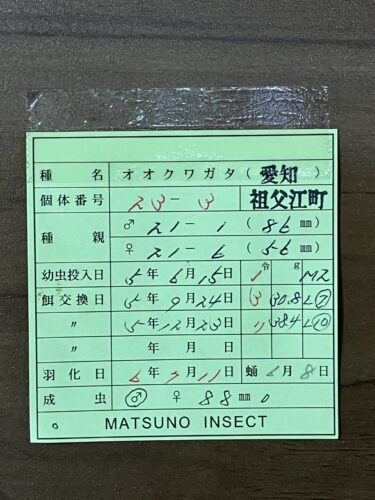 種 名 オオクワガタ ( 愛知
個体番号 23-3 祖父江町
種 親 ♂ 21-1 ( 86 ㎜)
♀ 21-6 ( 56 ㎜)
令 g
幼虫投入日 5年6月15日 1 M2
餌交換日 5年9月24日 3 30.8 L⑦
〃 5年12月23日 〃 38.4 L⑩
〃 年 月 日
羽化日 6年7月11日 蛹 6月8日
成 虫 ♂ ♀ 88 ㎜ 0
MATSUNO INSECT